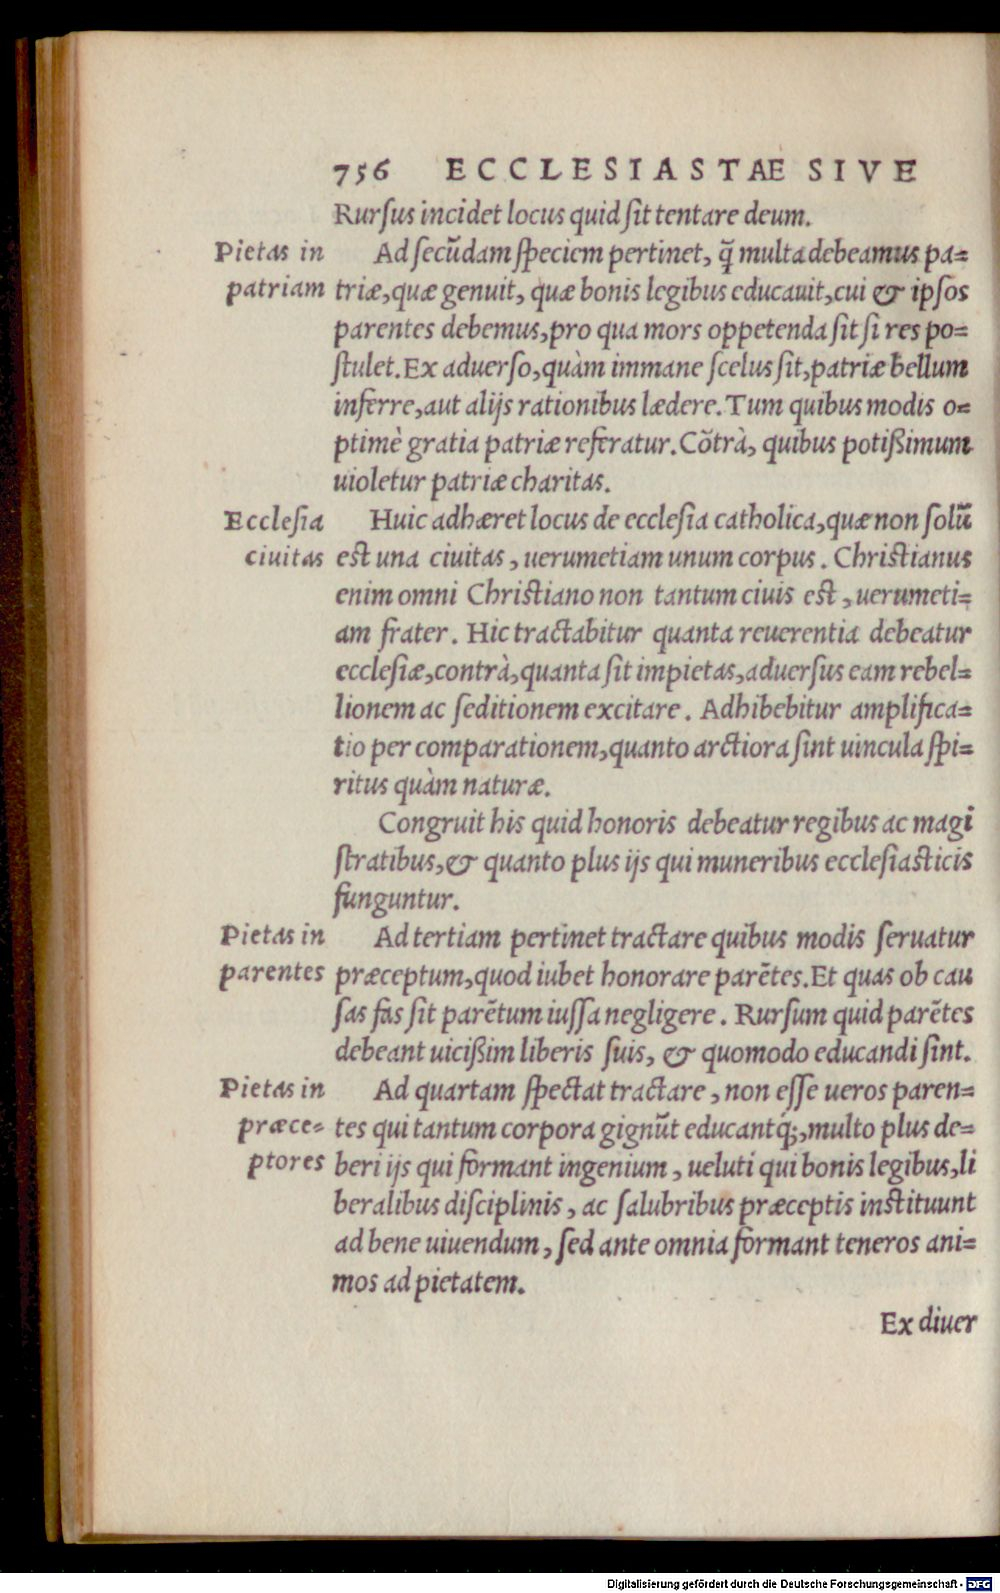 756 ECCLESIASTAE SIVE
Rursus incidet locus quid sit tentare deum.
Pietas in
patriam
Ad secũdam speciem pertinet, q̃ multa debeamus pa=
triæ, quæ genuit, quæ bonis legibus educauit, cui & ipsos
parentes debemus, pro qua mors oppetenda sit si res po=
stulet. Ex aduerso, quàm immane scelus sit, patriæ bellum
inferre, aut alijs rationibus lædere. Tum quibus modis o=
ptimè gratia patriæ referatur. Cõtrà, quibus potißimum
uioletur patriæ charitas.
Ecclesia
ciuitas
Huic adhæret locus de ecclesia catholica, quæ non solũ
est una ciuitas, uerumetiam unum corpus. Christianus
enim omni Christiano non tantum ciuis est, uerumeti=
am frater. Hic tractabitur quanta reuerentia debeatur
ecclesiæ, contrà, quanta sit impietas, aduersus eam rebel=
lionem ac seditionem excitare. Adhibebitur amplifica=
tio per comparationem, quanto arctiora sint uincula spi=
ritus quàm naturæ.
Congruit his quid honoris debeatur regibus ac magi
stratibus, & quanto plus ijs qui muneribus ecclesiasticis
funguntur.
Pietas in
parentes
Ad tertiam pertinet tractare quibus modis seruatur
præceptum, quod iubet honorare parẽtes. Et quas ob cau
sas fas sit parẽtum iussa negligere. Rursum quid parẽtes
debeant uicißim liberis suis, & quomodo educandi sint.
Pietas in
præce=
ptores
Ad quartam spectat tractare, non esse ueros paren=
tes qui tantum corpora gignũt educantq́;, multo plus de=
beri ijs qui formant ingenium, ueluti qui bonis legibus, li
beralibus disciplinis, ac salubribus præceptis instituunt
ad bene uiuendum, sed ante omnia formant teneros ani=
mos ad pietatem.
Ex diuer
Digitalisierung gefördert durch die Deutsche Forschungsgemeinschaft - DFG